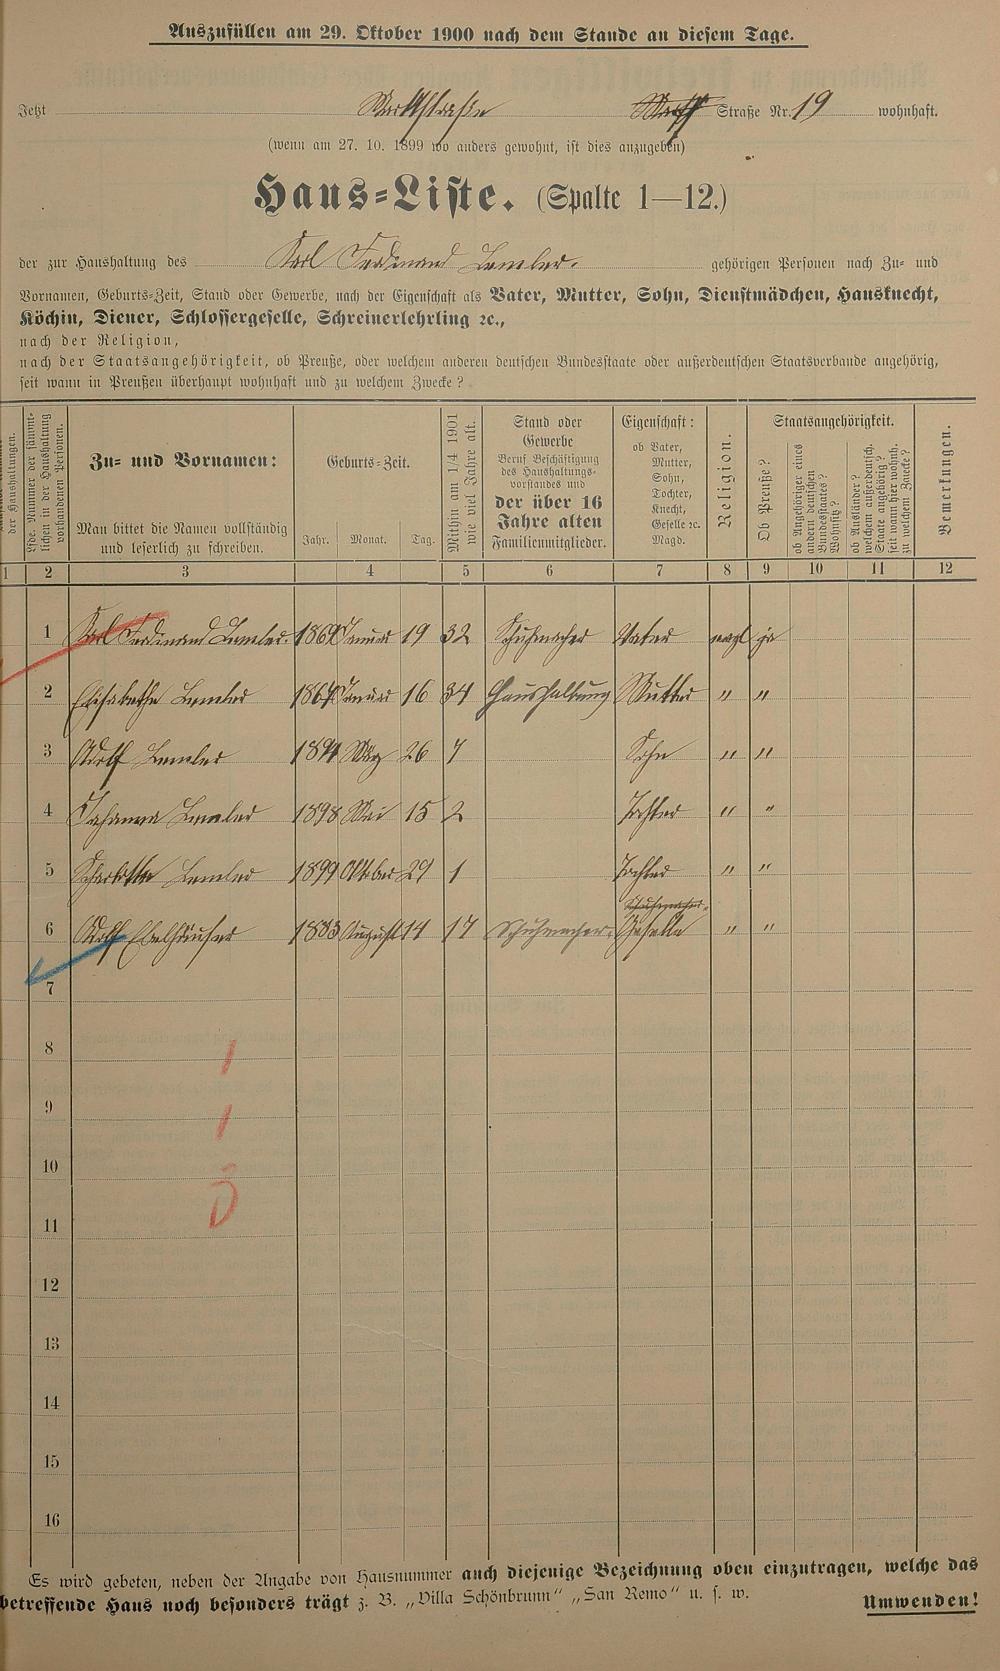 Auszufüllen am 29. Oktober 1900 nach dem Stande an diesem Tage.
Jetzt Straße Nr. 19 wohnhaft.
(wenn am 27. 10. 1899 wo anders gewohnt, ist dies anzugeben)
Haus-Liste. (Spalte 1—12.)
der zur Haushaltung des Karl Ferdinand Lemler. gehörigen Personen nach Zu- und
Vornamen, Geburts-Zeit, Stand oder Gewerbe, nach der Eigenschaft als Vater, Mutter, Sohn, Dienstmädchen, Hausknecht,
Köchin, Diener, Schlossergeselle, Schreinerlehrling ꝛc.,
nach der Religion,
nach der Staatsangehörigkeit, ob Preuße, oder welchem anderen deutschen Bundesstaate oder außerdeutschen Staatsverbande angehörig,
seit wann in Preußen überhaupt wohnhaft und zu welchem Zwecke?
der Haushaltungen.
Lfde. Nummer der sämmt-
lichen in der Haushaltung
vorhandenen Personen.
Zu- und Vornamen:
Man bittet die Namen vollständig
und leserlich zu schreiben.
Geburts-Zeit.
Jahr. Monat. Tag.
Mithin am 1/4 1901
wie viel Jahre alt.
Stand oder
Gewerbe
Beruf Beschäftigung
des Haushaltungs-
vorstandes und
der über 16
Jahre alten
Familienmitglieder.
Eigenschaft:
ob Vater,
Mutter,
Sohn,
Tochter,
Knecht,
Geselle ꝛc.
Magd.
Religion.
Staatsangehörigkeit.
Ob Preuße?
ob Angehöriger eines
andern deutschen
Bundesstaates?
Wohnsitz?
ob Ausländer?
welchem außerdeutsch.
Staate angehörig?
seit wann hier wohnh.
zu welchem Zwecke?
Bemerkungen.
1 2 3 4 5 6 7 8 9 10 11 12
1 Karl Ferdinand Lemler. 1869 Januar 19 32 Schuhmacher Vater evgl ja
2 Elisabethe Lemler Januar 16 34 Haushaltung Mutter " "
3 Adolf Lemler 1894 März 26 7 Sohn " "
4 Johanna Lemler 1898 Mai 15 2 Tochter " "
5 Charlotte Lemler 1899 Oktober 29 1 Tochter " "
6 Adolf Ebelhäuser 1883 August 14 17 Schuhmacher. Geselle " "
7
8
9
10
11
12
13
14
15
16
Es wird gebeten, neben der Angabe von Hausnummer auch diejenige Bezeichnung oben einzutragen, welche das
betreffende Haus noch besonders trägt z. B. „Villa Schönbrunn“ „San Remo“ u. s. w. Umwenden!